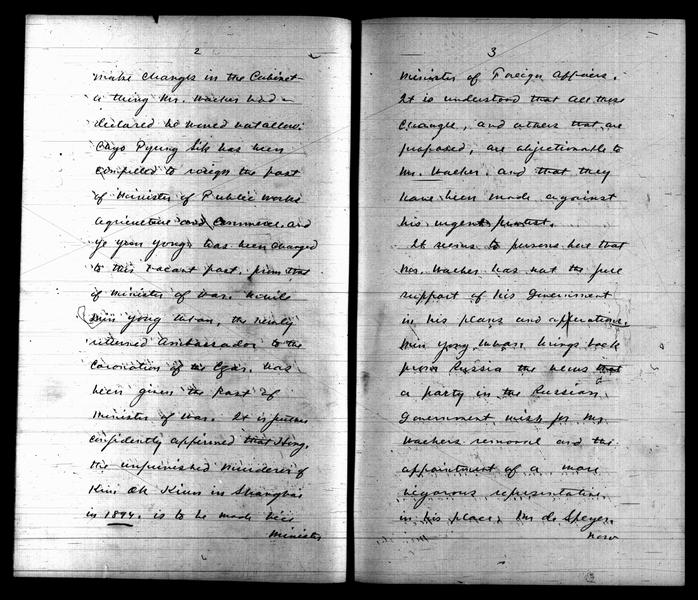 2
make changes in the Cabinet
a thing Mr. Waeber had
declared he would not allow.
Choyo Pyung Sik has been
compelled to resign the post
of Minister of Public Works
Agriculture and Commerce and
Ye Yun Yong has been changed
to this vacant post, from that
of Minister of War. While
Min Yong Whan, the newly
returned Ambassador to the
Coronation of the Czar, has
been given the Post of
Minister of War. It is further
confidently affirmed that Hong,
the unpunished Murderer of
Kim Ok Kiun in Shanghai
in 1894 is to be made Vice
Minister
3
Minister of Foreign Affairs.
It is understood that all these
changes, and others that are
proposed, are objectionable to
Mr. Waeber, and that they
have been made against
his urgent protest.
It seems to persons here that
Mr. Waeber has not the full
support of his Government
in his plans and operations.
Min Yong Whan brings back
from Russia the news that
a party in the Russian
Government wish for Mr.
Waebers removal and the
appointment of a more
vigorous representative
in his place. Mr de Speyer.
now